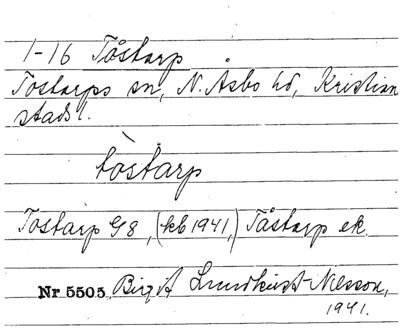 1-16 Tåstarp
Tostarps sn, N. Åsbo hd, Kristian
stads l.
tòstarp
Tostarp G8, (kb 1941,) Tåstarp ek.
Nr 5505 Birgit Lundkvist-Nilsson,
1941.